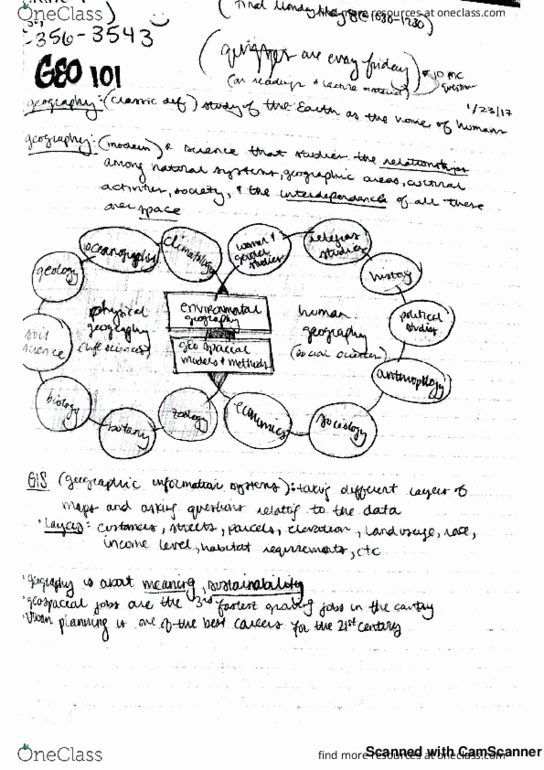 OneClass
find more resources at oneclass.com
356-3543
(quizzes are every friday)
(on readings + lecture material)
10 mc
question
GEO 101
1/23/17
geography: (classic def) study of the Earth as the home of humans
geography: (modern) a science that studies the relationships
among natural systems, geographic areas, cultural
activities, society, + the interdependence of all these
over space
oceanography
climatology
women + gender studies
religious studies
geology
history
physical geography (life sciences)
environmental geography
human geography (social sciences)
political studies
soil science
geospacial models + methods
anthropology
biology
botany
zoology
economics
sociology
GIS (geographic information systems): taking different layers of
maps and asking questions relating to the data
• Layers: customers, streets, parcels, elevation, land usage, race,
income level, habitat requirements, etc
• geography is about meaning, sustainability
• geospacial jobs are the 3rd fastest growing jobs in the country
• Urban planning is one of the best careers for the 21st century
OneClass
find more resources at oneclass.com
Scanned with CamScanner